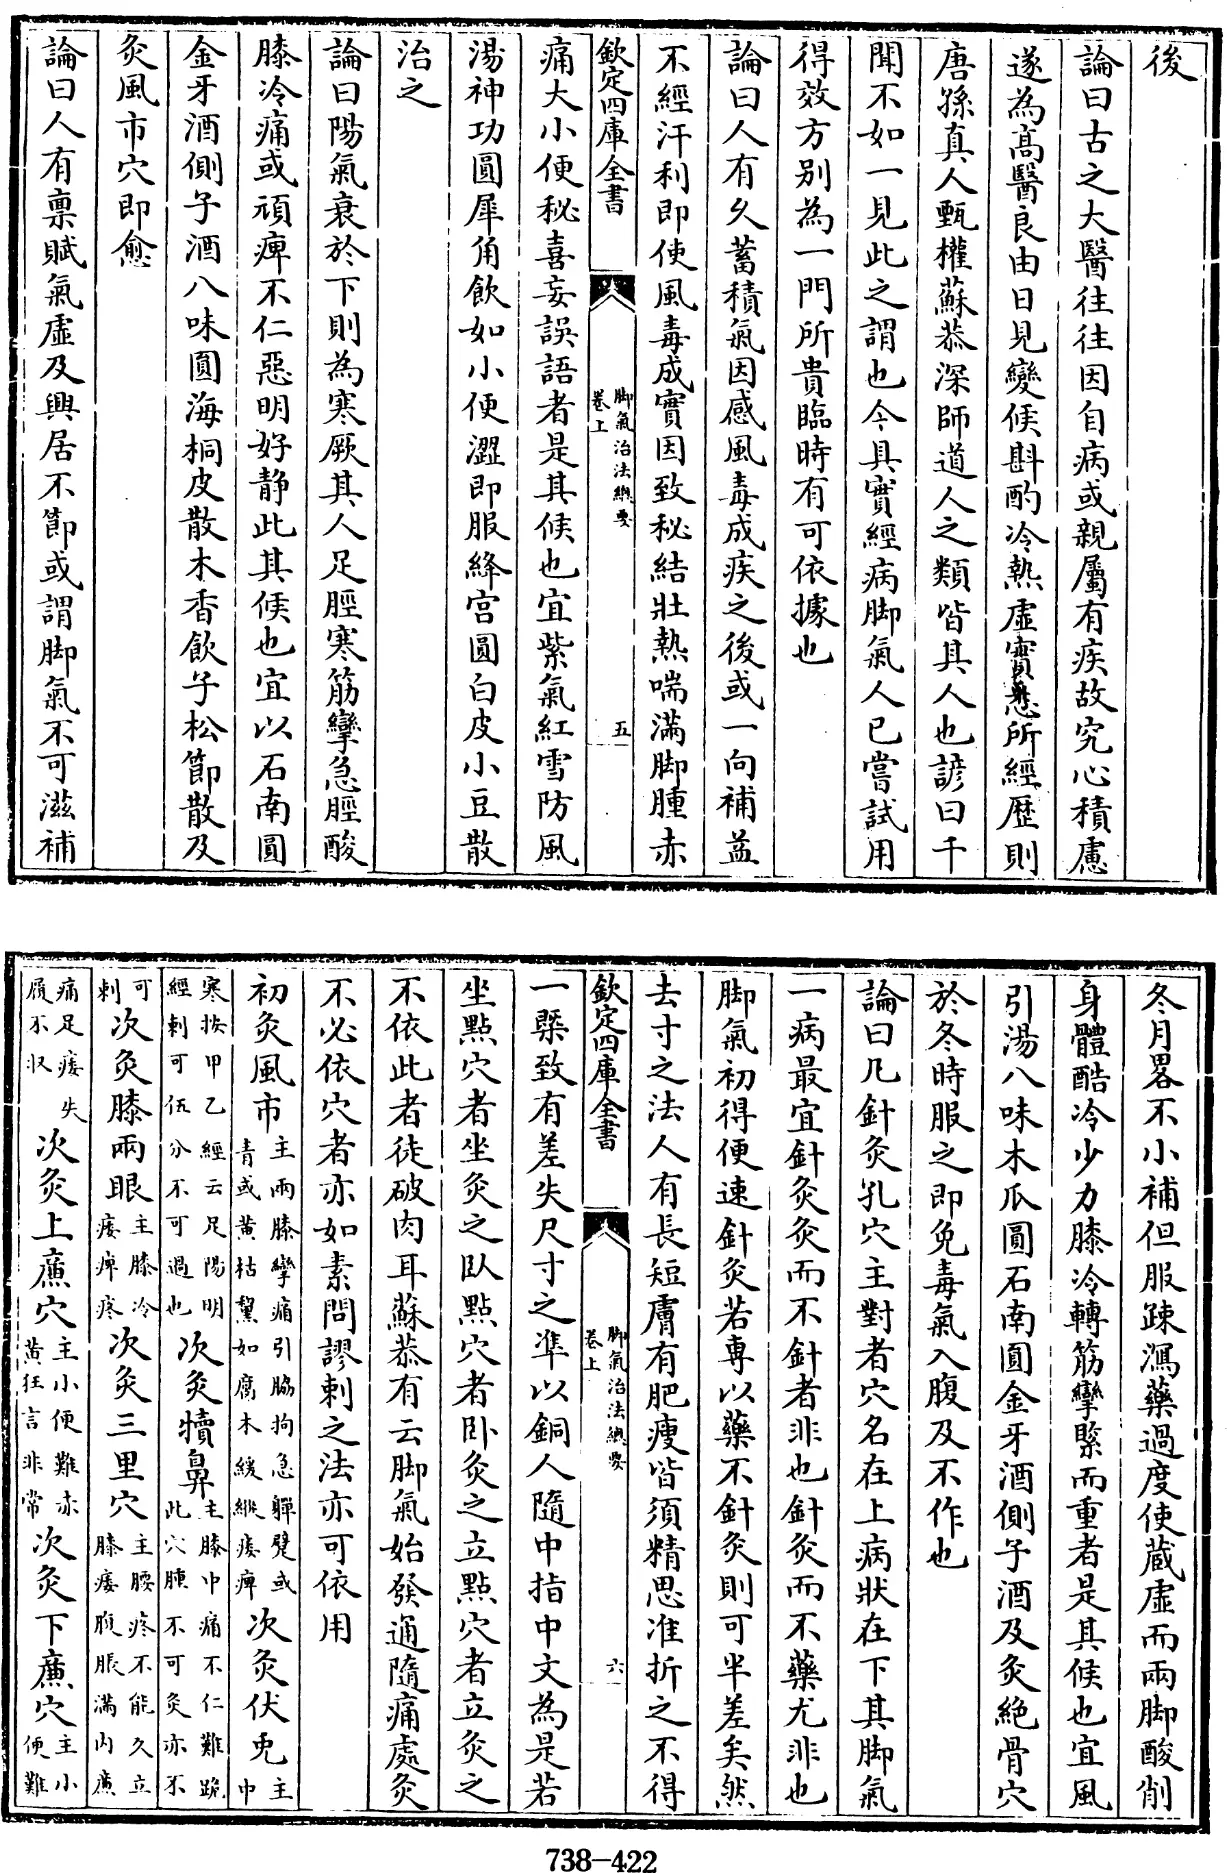 後
論曰古之大醫往往因自病或親屬有疾故究心積慮
遂為髙醫良由日見變候斟酌冷熱虛實悉所經歷則
唐孫真人甄權蘇恭深師道人之類皆其人也諺曰千
聞不如一見此之謂也今具實經病脚氣人已嘗試用
得效方别為一門所貴臨時有可依據也
論曰人有久蓄積氣因感風毒成疾之後或一向補益
不經汗利即使風毒成實因致秘結壯熱喘滿脚腫赤
欽定四庫全書
脚氣治法緫要
卷上
五
痛大小便秘喜妄誤語者是其候也宜紫氣紅雪防風
湯神功圓犀角飲如小便澀即服絳宫圓白皮小豆散
治之
論曰陽氣衰於下則為寒厥其人足脛寒筋攣急脛酸
膝冷痛或頑痺不仁惡明好静此其候也宜以石南圓
金牙酒側子酒八味圓海桐皮散木香飲子松節散及
灸風市穴即愈
論曰人有禀賦氣虛及興居不節或謂脚氣不可滋補
冬月畧不小補但服疎瀉藥過度使蔵虛而兩脚酸削
身體酷冷少力膝冷轉筋攣緊而重者是其候也宜風
引湯八味木瓜圓石南圓金牙酒側子酒及灸絶骨穴
於冬時服之即免毒氣入腹及不作也
論曰凡針灸孔穴主對者穴名在上病狀在下其脚氣
一病最宜針灸灸而不針者非也針灸而不藥尤非也
脚氣初得便速針灸若專以藥不針灸則可半差矣然
去寸之法人有長短膚有肥瘦皆須精思准折之不得
欽定四庫全書
脚氣治法緫要
卷上
六
一槩致有差失尺寸之凖以銅人隨中指中文為是若
坐點穴者坐灸之臥點穴者卧灸之立點穴者立灸之
不依此者徒破肉耳蘇恭有云脚氣始發通隨痛處灸
不必依穴者亦如素問謬刺之法亦可依用
初灸風市主兩膝攣痛引脇拘急嚲躄或青或黄枯黧如腐木緩縱痿痺次灸伏兎主中
寒按甲乙經云足陽明經刺可伍分不可過也次灸犢鼻主膝中痛不仁難跪此穴腫不可灸亦不
可刺次灸膝兩眼主膝冷痿痺疼次灸三里穴主腰疼不能久立膝痿腹脹滿内廉
痛足痿失履不収次灸上廉穴主小便難赤黄狂言非常次灸下廉穴主小便難
738-422